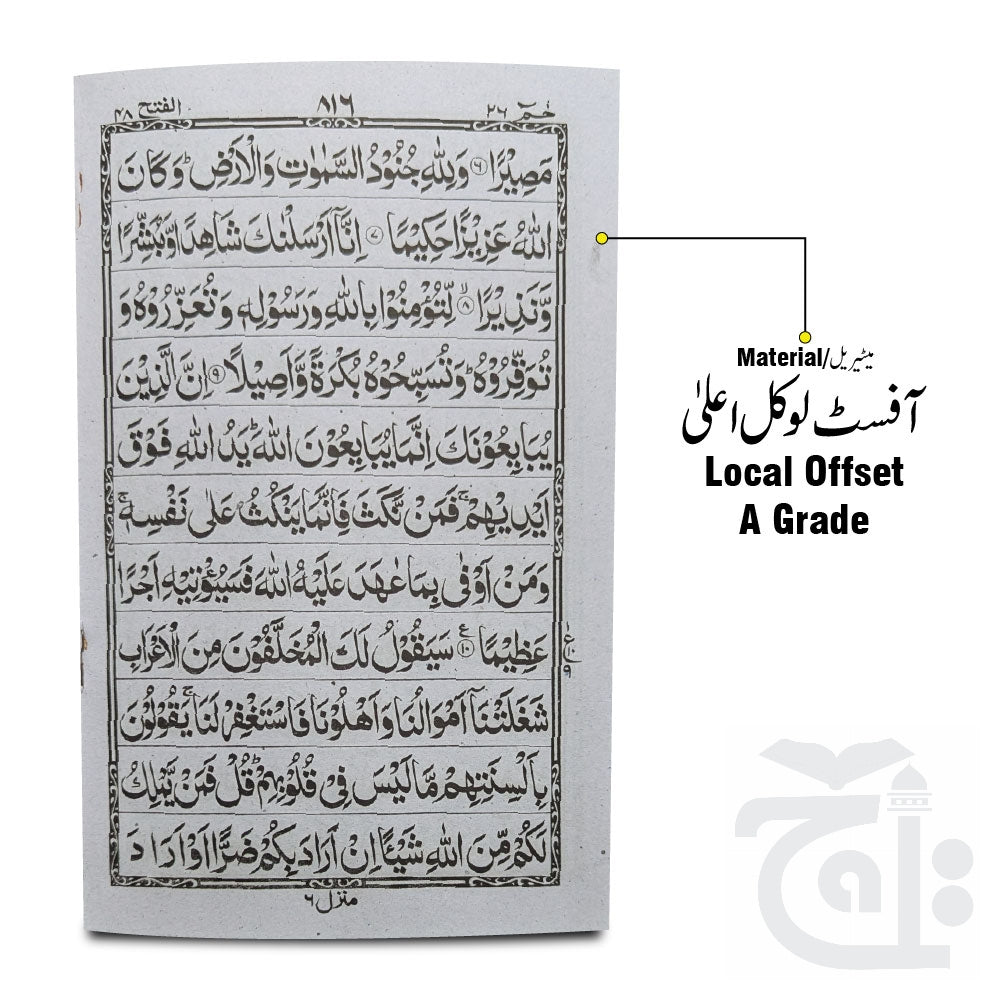 حٰمٓ ٢٦
٨١٦
الفتح ٤٨
مَصِيْرًا ۝٦ وَلِلّٰهِ جُنُوْدُ السَّمٰوٰتِ وَالْاَرْضِ ؕ وَكَانَ
اللّٰهُ عَزِيْزًا حَكِيْمًا ۝٧ اِنَّآ اَرْسَلْنٰكَ شَاهِدًا وَّمُبَشِّرًا
وَّنَذِيْرًا ۝٨ۙ لِّتُؤْمِنُوْا بِاللّٰهِ وَرَسُوْلِهٖ وَتُعَزِّرُوْهُ وَ
تُوَقِّرُوْهُ ؕ وَتُسَبِّحُوْهُ بُكْرَةً وَّاَصِيْلًا ۝٩ اِنَّ الَّذِيْنَ
يُبَايِعُوْنَكَ اِنَّمَا يُبَايِعُوْنَ اللّٰهَ ؕ يَدُ اللّٰهِ فَوْقَ
اَيْدِيْهِمْ ۚ فَمَنْ نَّكَثَ فَاِنَّمَا يَنْكُثُ عَلٰى نَفْسِهٖ ۚ
وَمَنْ اَوْفٰى بِمَا عٰهَدَ عَلَيْهُ اللّٰهَ فَسَيُؤْتِيْهِ اَجْرًا
عَظِيْمًا ۝١٠ۧ سَيَقُوْلُ لَكَ الْمُخَلَّفُوْنَ مِنَ الْاَعْرَابِ
شَغَلَتْنَآ اَمْوَالُنَا وَاَهْلُوْنَا فَاسْتَغْفِرْ لَنَا ۚ يَقُوْلُوْنَ
بِاَلْسِنَتِهِمْ مَّا لَيْسَ فِيْ قُلُوْبِهِمْ ؕ قُلْ فَمَنْ يَّمْلِكُ
لَكُمْ مِّنَ اللّٰهِ شَيْئًا اِنْ اَرَادَ بِكُمْ ضَرًّا اَوْ اَرَادَ
منزل ٦
Material/میٹیریل
آفسٹ لوکل اعلیٰ
Local Offset
A Grade